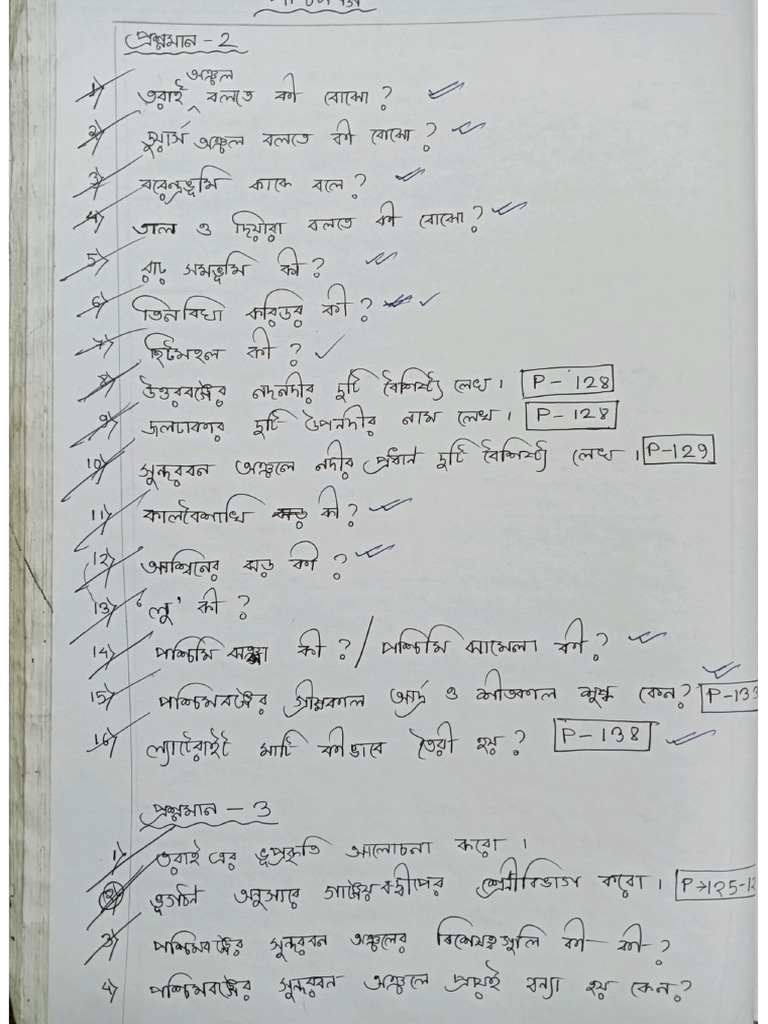 প্রশ্নমান - 2
1) তরাই অঞ্চল বলতে কী বোঝো?
2) ডুয়ার্স অঞ্চল বলতে কী বোঝো?
3) বরেন্দ্রভূমি কাকে বলে?
4) তাল ও দিয়ারা বলতে কী বোঝো?
5) রাঢ় সমভূমি কী?
6) তিনবিঘা করিডর কী?
7) ছিটমহল কী?
8) উত্তরবঙ্গের নদনদীর দুটি বৈশিষ্ট্য লেখ। P - 128
9) জলঢাকার দুটি উপনদীর নাম লেখ। P - 128
10) সুন্দরবন অঞ্চলে নদীর প্রধান দুটি বৈশিষ্ট্য লেখ। P-129
11) কালবৈশাখি ঝড় কী?
12) আশ্বিনের ঝড় কী?
13) 'লু' কী?
14) পশ্চিমি ঝঞ্ঝা কী? / পশ্চিমি ঝামেলা কী?
15) পশ্চিমবঙ্গের গ্রীষ্মকাল আর্দ্র ও শীতকাল শুষ্ক কেন? P-133
16) ল্যাটেরাইট মাটি কীভাবে তৈরী হয়? P - 138
প্রশ্নমান - 3
1) তরাই এর ভূপ্রকৃতি আলোচনা করো।
2) ভূগঠন অনুসারে গাঙ্গেয় বদ্বীপের শ্রেণীবিভাগ করো। P→125-12
3) পশ্চিমবঙ্গের সুন্দরবন অঞ্চলের বিশেষত্বগুলি কী কী?
4) পশ্চিমবঙ্গের সুন্দরবন অঞ্চলে প্রায়ই বন্যা হয় কেন?